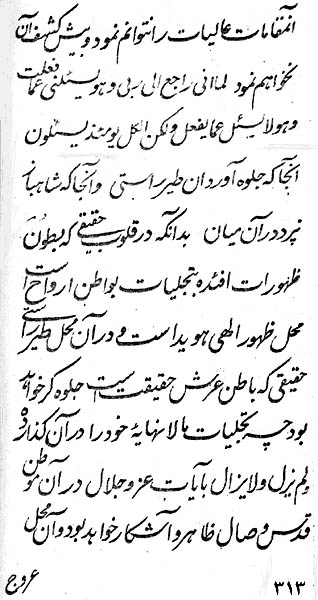 آنمقامات عالیات را نتوانم نمود و بیش کشف آن
نخواهم نمود لمّا انی راجع الی ربی و هو یسئلنی عمّا فعلت
و هو لا یسئل عمّا یفعل ولکن الکل یومئذ یسئلون
آنجا که جلوه آورد آن طیر راستی و آنجا که شاهباز
نپرد در آن میان بدانکه در قلوب حقیقی که بطون
ظهورات افئده بتجلیات بواطن ارواح است
محل ظهور الهی هویداست و در آن محل طیر راستی
حقیقی که باطن عرش حقیقت است جلوه گر خواهد
بود چه تجلیات مالانهایهٔ خود را در آن گذارده
و لم یزل و لا یزال بآیات عز و جلال در آن موطن
قدس و وصال ظاهر و آشکار خواهد بود و آن محل
عروج
۳۱۳